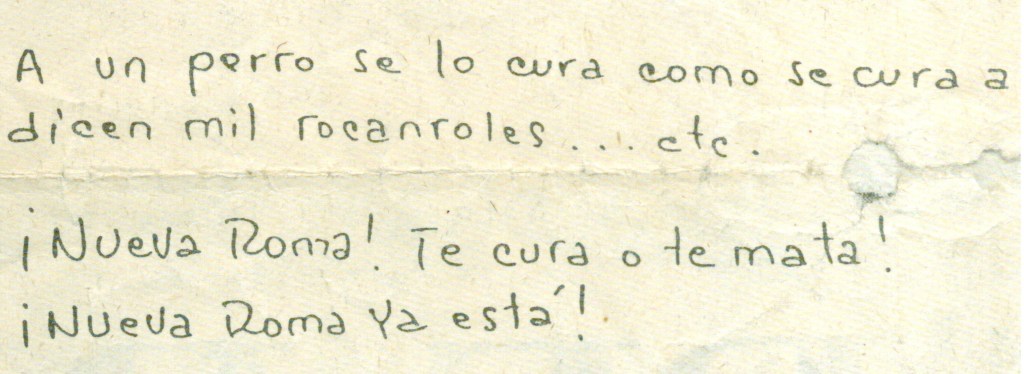 A un perro se lo cura como se cura a
dicen mil rocanroles... etc.
¡Nueva Roma! Te cura o te mata!
¡Nueva Roma Ya está!